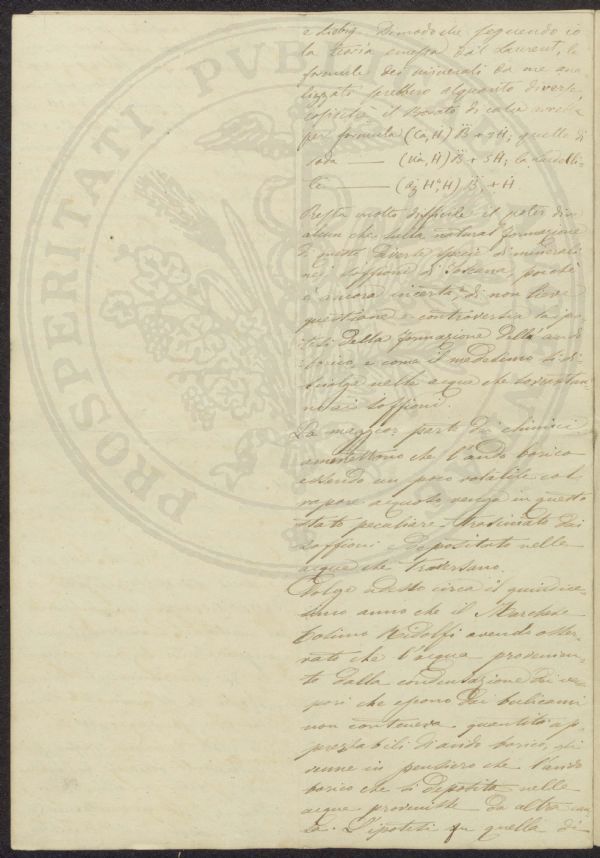 e Liebig. Dimodochè seguendo io
la teoria emessa dal Laurent, le
formule dei minerali da me ana-
lizzato sarebbero alquanto diverse,
cosicchè il Borato di calce avrebbe
per formula (Ca, H) B + 3H; quello di
soda —— (Na, H) B + 5H; la
le —— H, H) B, + H
Resta molto difficile il poter dir
alcun chè sulla natural formazione
di queste diverse specie di minerali
nei soffioni di Toscana, poichè
è ancora incerta, di non lieve
questione e controversia la ipo-
tesi della formazione dell'acido
borico, e come il medesimo si di-
sciolga nelle acque che sovrastan-
no ai soffioni.
La maggior parte dei chimici
ammettono che l'acido borico
essendo un poco volatile col
vapore acquoso venga in questo
stato peculiare trascinato dai
soffioni depositato nelle
acque che traversano.
Volge adesso circa il quindice-
simo anno che il Marchese
Cosimo Ridolfi avendo osser-
vato che l'acqua provenien-
te dalla condensazione dei va-
pori che escono dai bulicami
non conteneva quantità ap-
prezzabili di acido borico, gli
venne in pensiero che l'acido
borico che si deposita nelle
acque provenisse da altra cau-
sa. L'ipotesi fu quella di
PROSPERITATI PUBLICAE